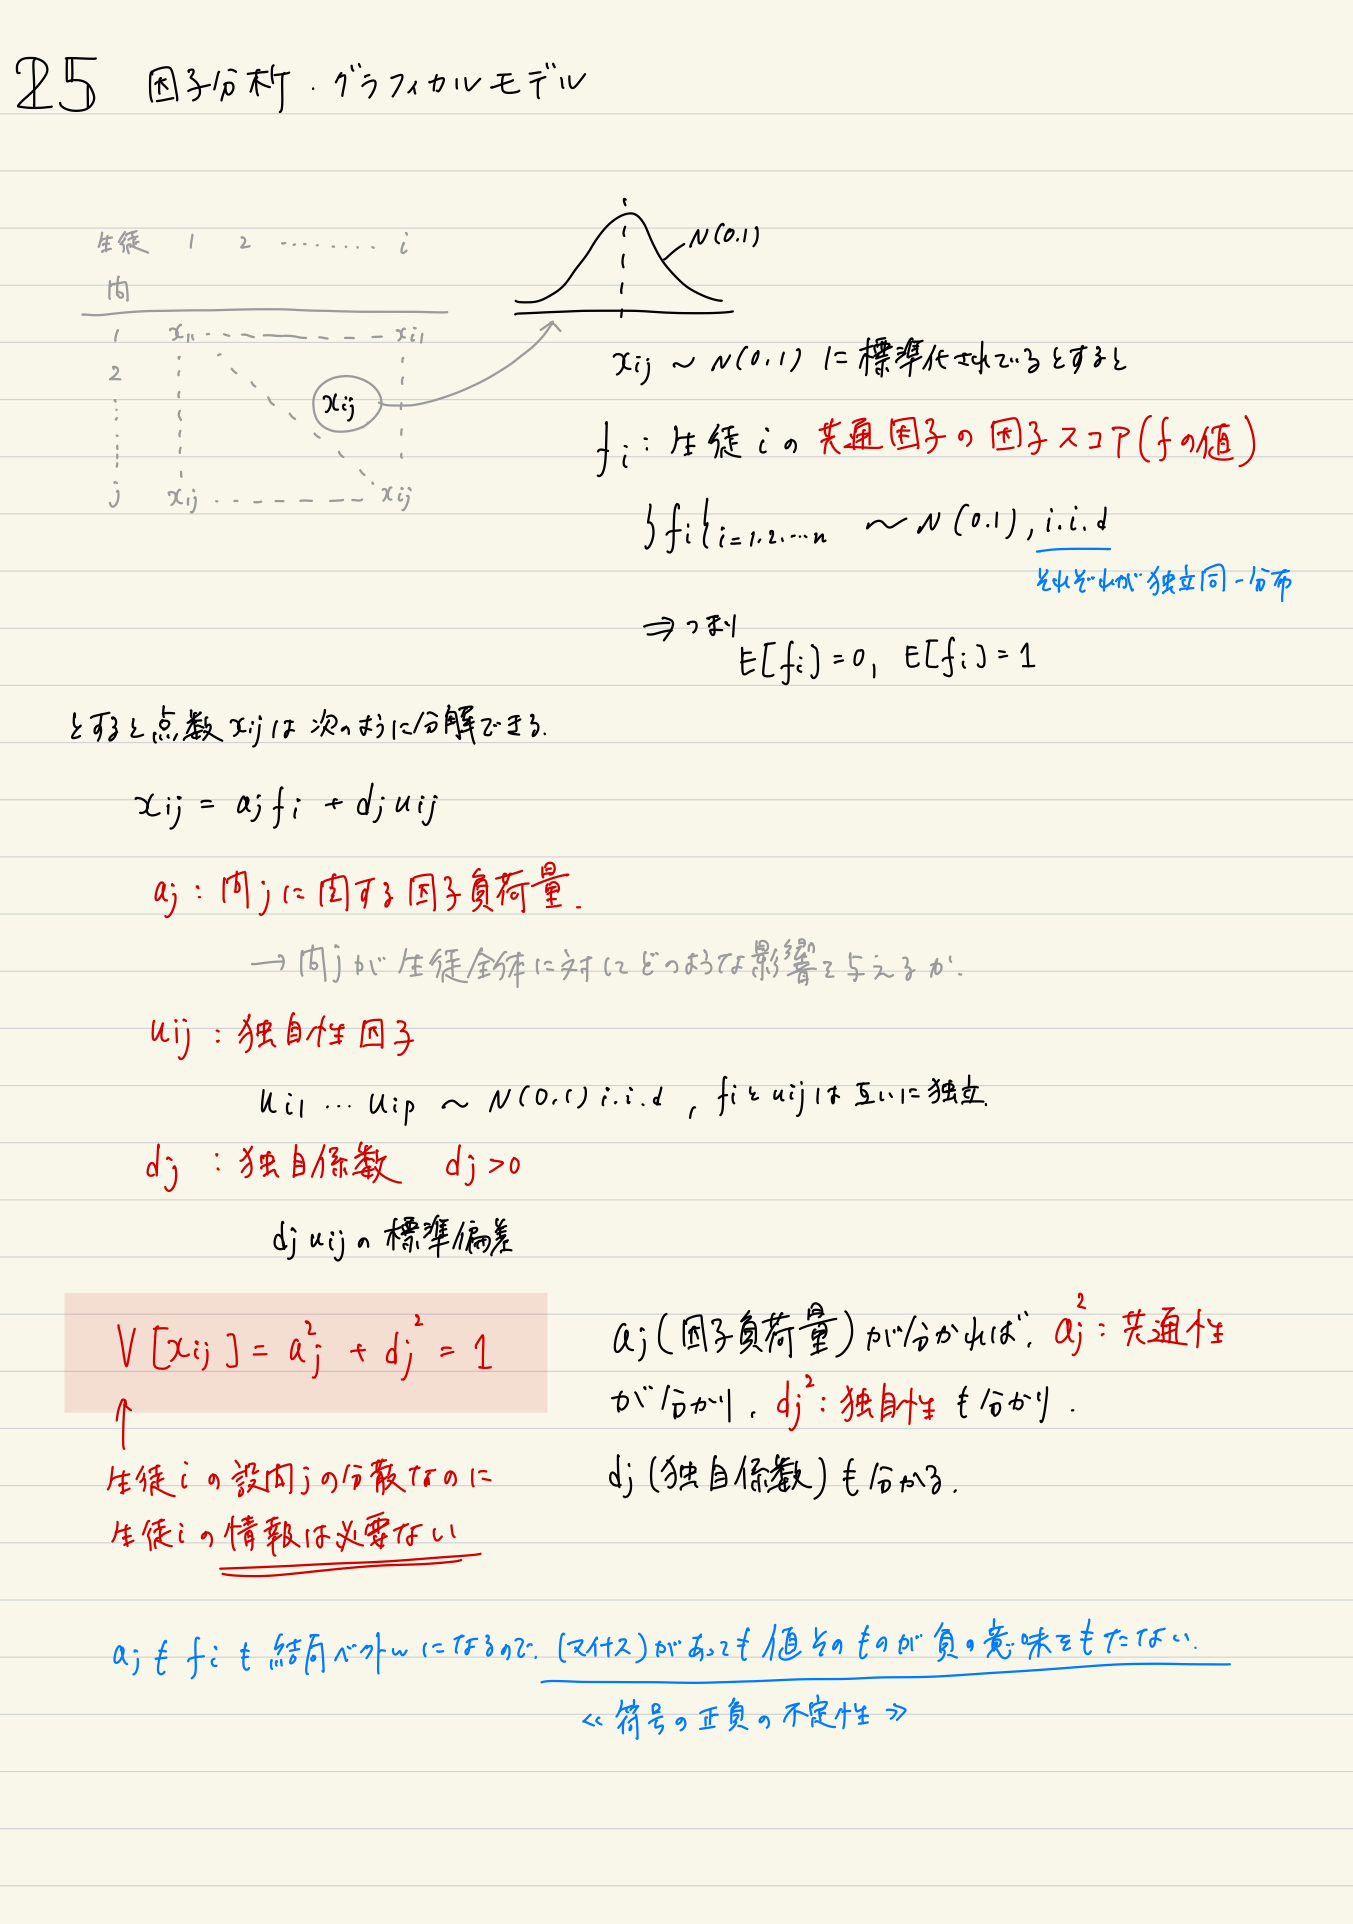 25 因子分析・グラフィカルモデル
生徒 1 2 ......... i
問
1 x11 ------- xi1
2
xij
j x1j ------- xij
N(0.1)
xij ~ N(0,1) に標準化されているとすると
fi : 生徒 i の共通因子の因子スコア(fの値)
{fi}i=1.2.…n ~ N(0.1), i.i.d
それぞれが独立同一分布
⇒つまり
E[fi]=0, E[fi]=1
とすると点数xijは次のように分解できる.
xij = aj fi + dj uij
aj : 問jに関する因子負荷量.
→問jが生徒全体に対してどのような影響を与えるか.
uij : 独自性因子
ui1 … uip ~ N(0,1) i.i.d , fiとuijは互いに独立.
dj : 独自係数 dj>0
dj uijの標準偏差
V[xij] = aj² + dj² = 1
↑
生徒iの設問jの分散なのに
生徒iの情報は必要ない
aj(因子負荷量)が分かれば, aj²:共通性
が分かり, dj²:独自性も分かり.
dj(独自係数)も分かる.
ajもfiも結局ベクトルになるので,(マイナス)があっても値そのものが負の意味をもたない.
≪符号の正負の不定性≫